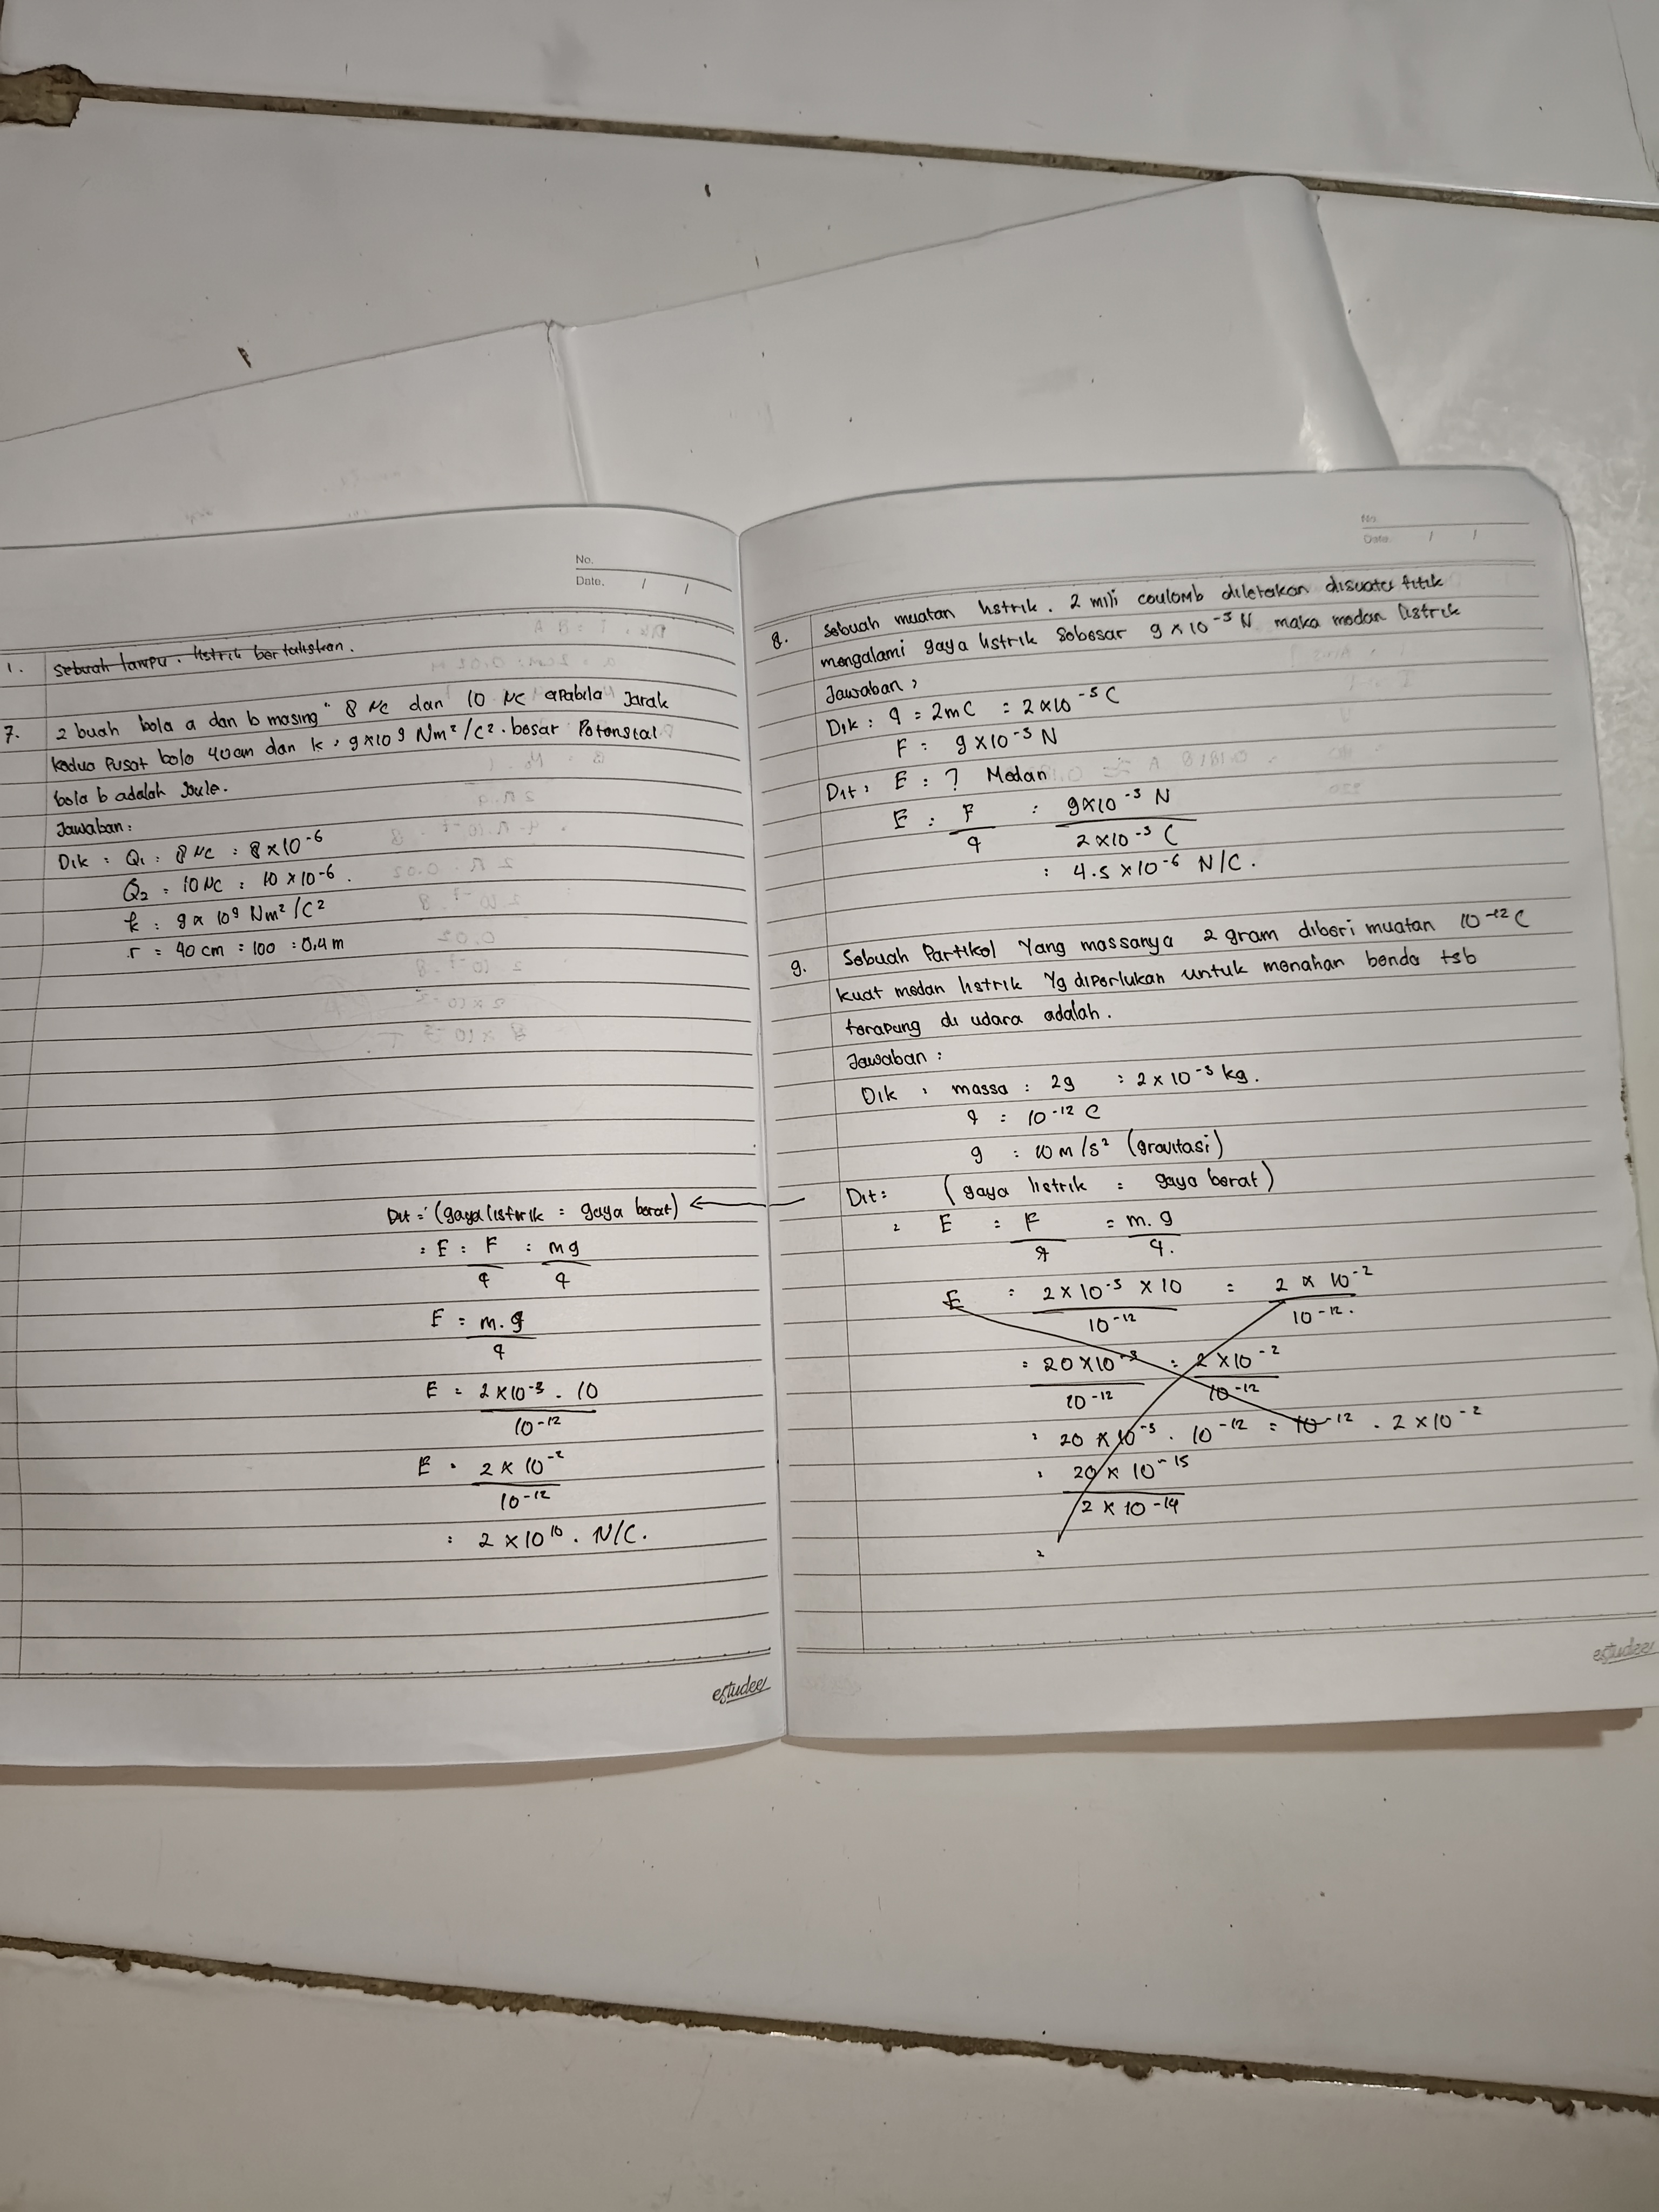 No.
Date. / /
1. Sebuah lampu. listrik bertuliskan.
7. 2 buah bola a dan b masing" 8 μc dan 10 μc apabila Jarak
kedua Pusat bola 40cm dan k : 9x10⁹ Nm²/C². besar Potensial
bola b adalah Joule.
Jawaban:
Dik : Q₁ : 8 μc : 8 x 10⁻⁶
Q₂ : 10 μc : 10 x 10⁻⁶.
k : 9 x 10⁹ Nm²/C²
r = 40 cm : 100 : 0,4 m
Dit = (gaya listrik : gaya berat) ←
: E : F/q : mg/q
E = m.g/q
E = 2x10⁻³ . 10/10⁻¹²
E = 2 x 10⁻²/10⁻¹²
: 2 x 10¹⁰. N/C.
estudee
No.
Date. / /
8. Sebuah muatan listrik. 2 mili coulomb diletakan disuatu titik
mengalami gaya listrik sebesar 9 x 10⁻³ N maka medan listrik
Jawaban :
Dik : q = 2mC : 2x10⁻³ C
F : 9x10⁻³ N
Dit : E : ? Medan
E : F/q : 9x10⁻³ N/2x10⁻³ C
: 4.5 x10⁻⁶ N/C.
9. Sebuah Partikel Yang massanya 2 gram diberi muatan 10⁻¹² C
kuat medan listrik Yg diperlukan untuk menahan benda tsb
terapung di udara adalah.
Jawaban :
Dik : massa : 2g : 2 x 10⁻³ kg.
q : 10⁻¹² C
g : 10 m/s² (gravitasi)
Dit : (gaya listrik : gaya berat)
: E : F/q = m.g/q.
E : 2x10⁻³ x 10/10⁻¹² = 2 x 10⁻²/10⁻¹².
: 20x10⁻³/10⁻¹² : 2x10⁻²/10⁻¹²
: 20 x 10⁻³ . 10⁻¹² = 10⁻¹² . 2 x 10⁻²
: 20 x 10⁻¹⁵/2 x 10⁻¹⁴
:
estudee